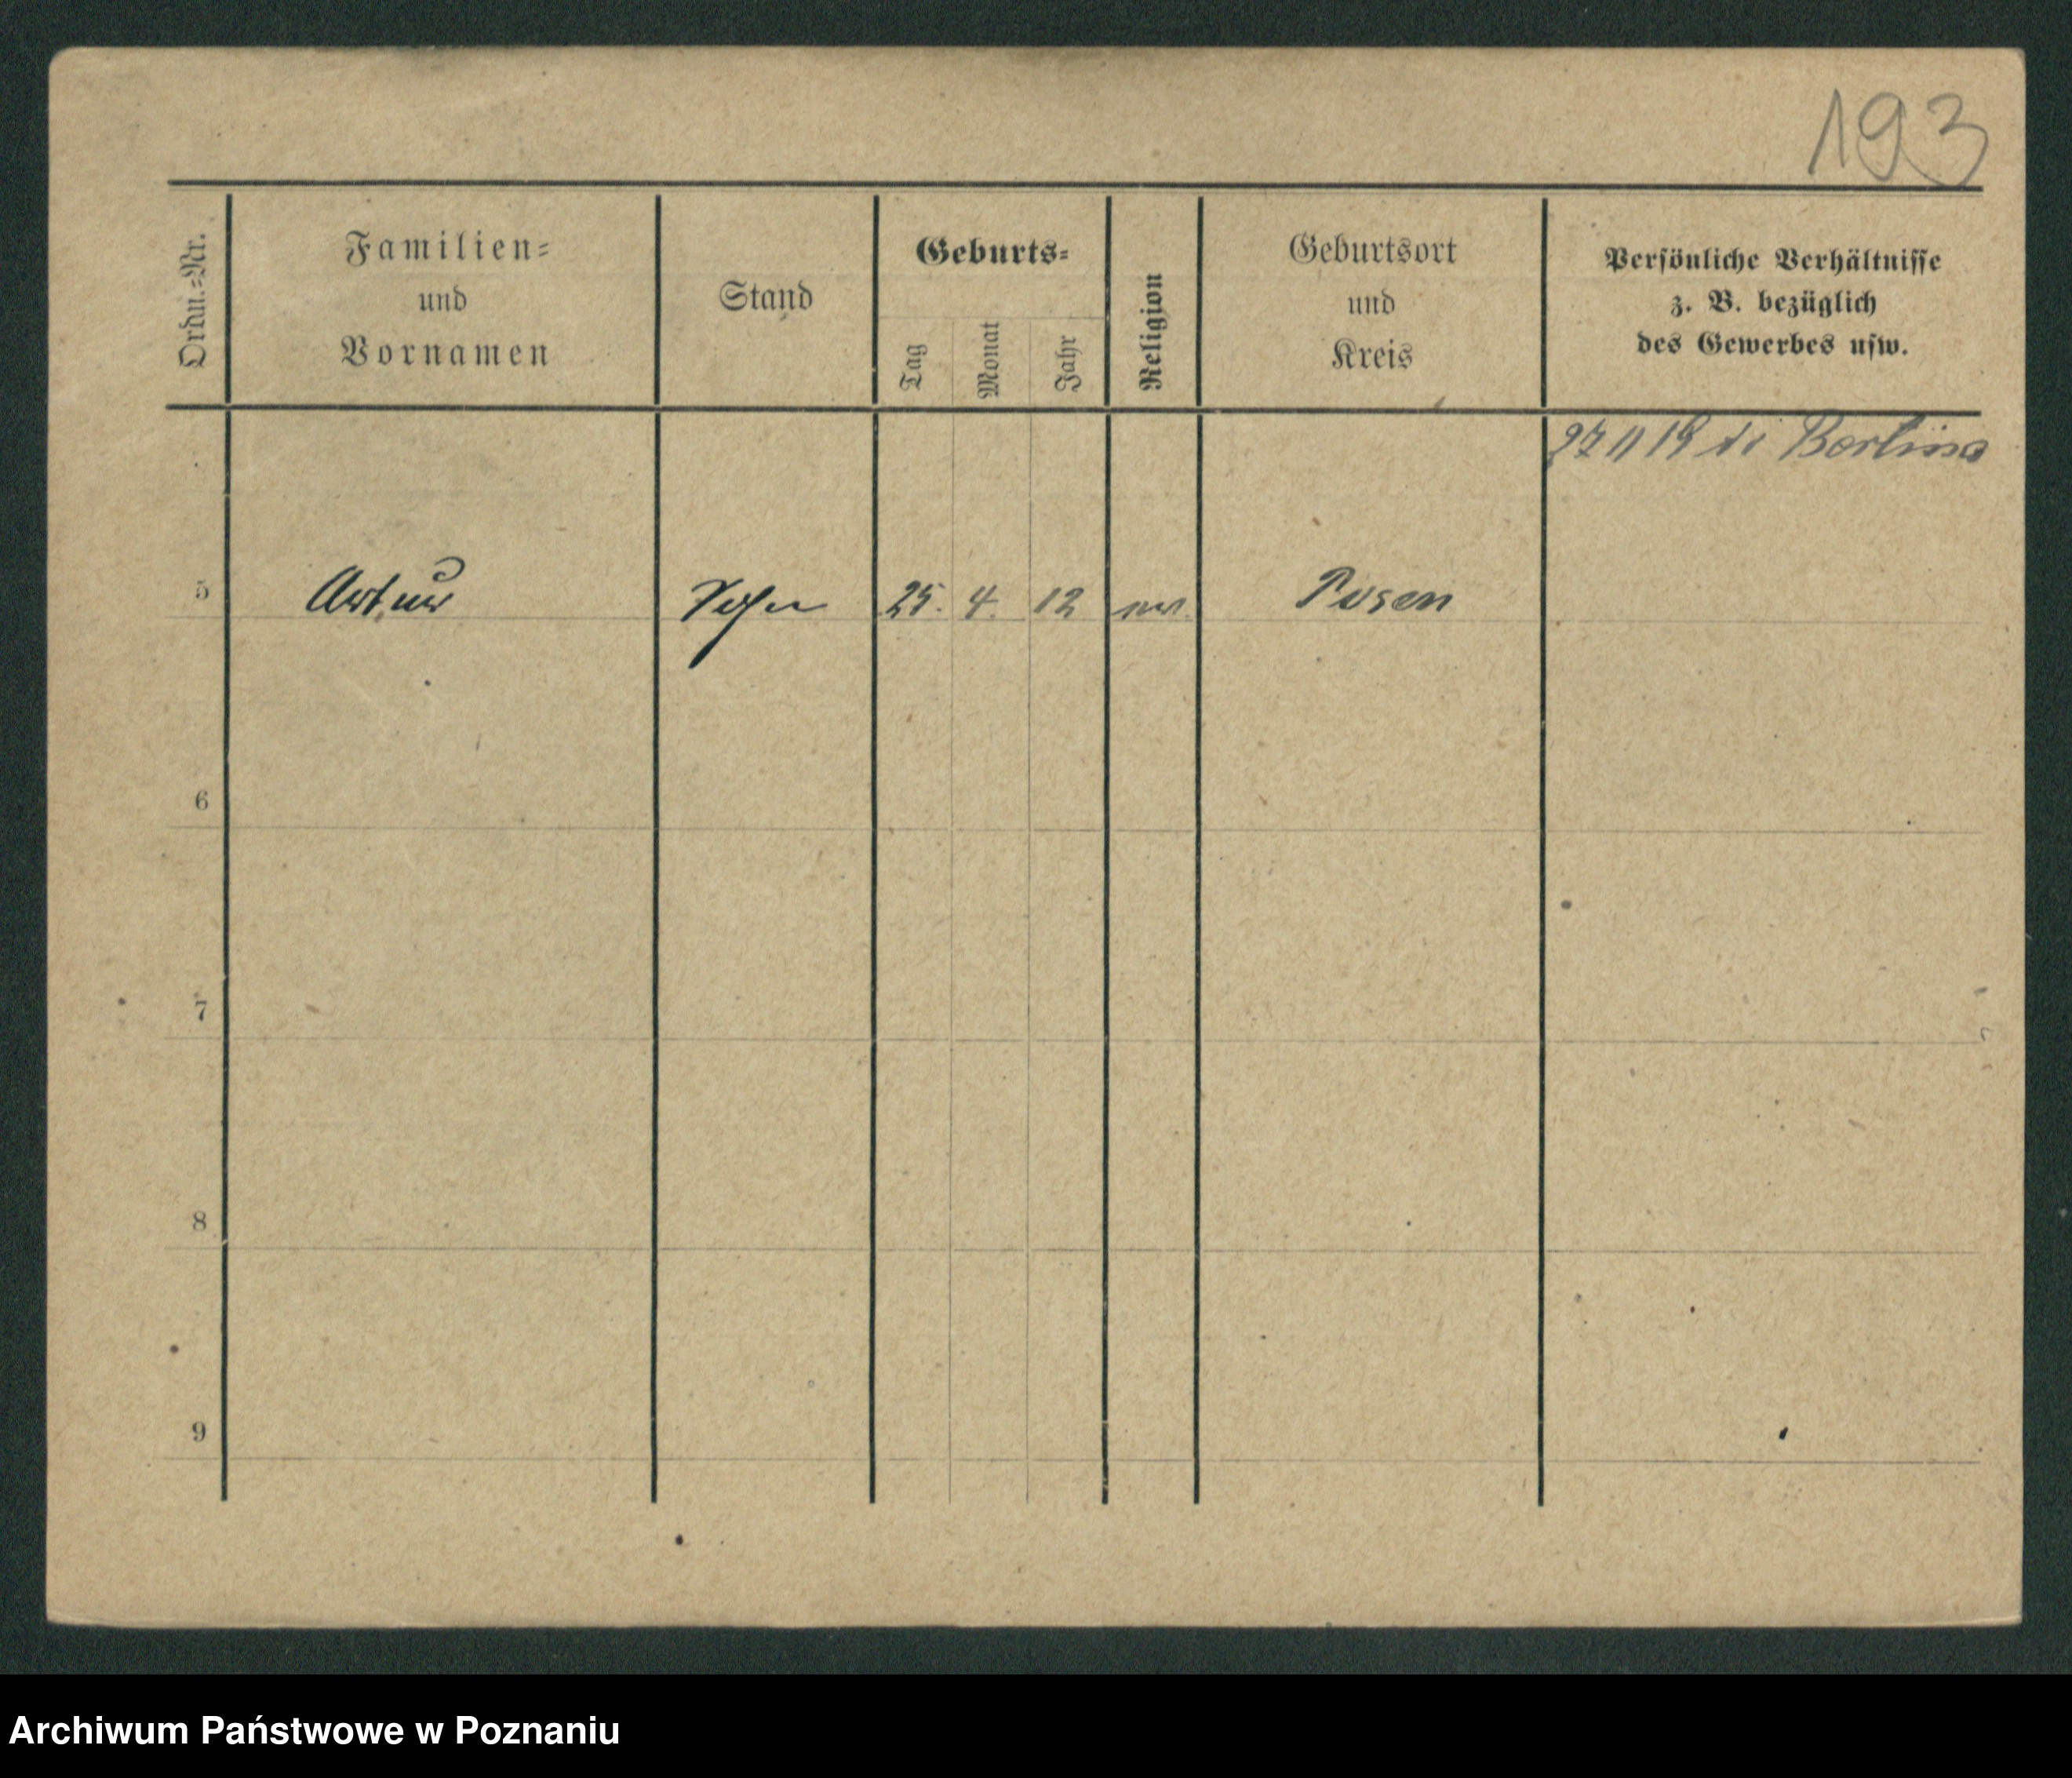 193
Ordn.=Nr.
Familien=
und
Vornamen
Stand
Geburts=
Tag
Monat
Jahr
Religion
Geburtsort
und
Kreis
Persönliche Verhältnisse
z. B. bezüglich
des Gewerbes usw.
27 11 19 di Berlina
5 Artur Sohn 25. 4. 12 Posen
6
7
8
9
Archiwum Państwowe w Poznaniu